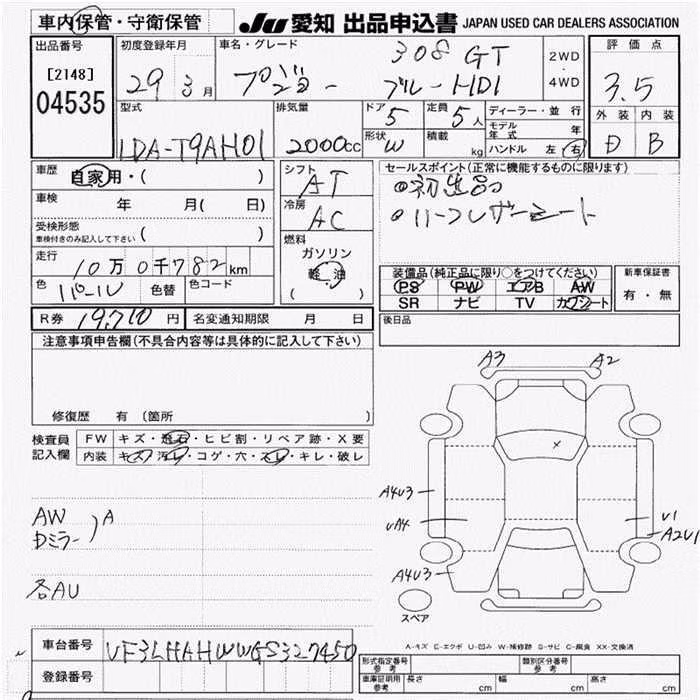 車内保管・守衛保管
JU 愛知 出品申込書 JAPAN USED CAR DEALERS ASSOCIATION
出品番号 初度登録年月 車名・グレード 評価点
[2148] 29 3月 プジョー 308 GT 2WD 3.5
04535 ブルーHDI 4WD
外装 内装
D B
型式 排気量 ドア 5 定員 5人 ディーラー・並行
モデル年式 年
LDA-T9AH01 2000cc 形状 W 積載 kg ハンドル 左 右
車歴 自家用・( ) シフト AT セールスポイント(正常に機能するものに限ります)
車検 年 月( 日) 冷房 AC
・ハーフレザーシート
受検形態
車検付きのみ記入して下さい ( )
燃料
ガソリン
軽油
( )
走行 10万0千782km
装備品(純正品に限り○をつけてください) 新車保証書
PS PW エアB AW 有・無
SR ナビ TV カワシート
色 パール 色替 色コード
R券 19,710円 名変通知期限 月 日 後日品
注意事項申告欄(不具合内容等は具体的に記入して下さい)
修復歴 有 (箇所 )
検査員 FW キズ・飛石・ヒビ割・リペア跡・X要
記入欄 内装 キズ・汚レ・コゲ・穴・スレ・キレ・破レ
A3 A2
X
A4U3
UA4
A4U3
U1
A2U1
AW
Dミラー A
各AU
スペア
A-キズ E-エクボ U-凹み W-補修跡 S-サビ C-腐食 XX-交換済
車台番号 VF3LHAHWWGS327450
登録番号
形式指定番号 参考 類別区分番号 参考
車庫証明用 参考 長さ cm 幅 cm 高さ cm